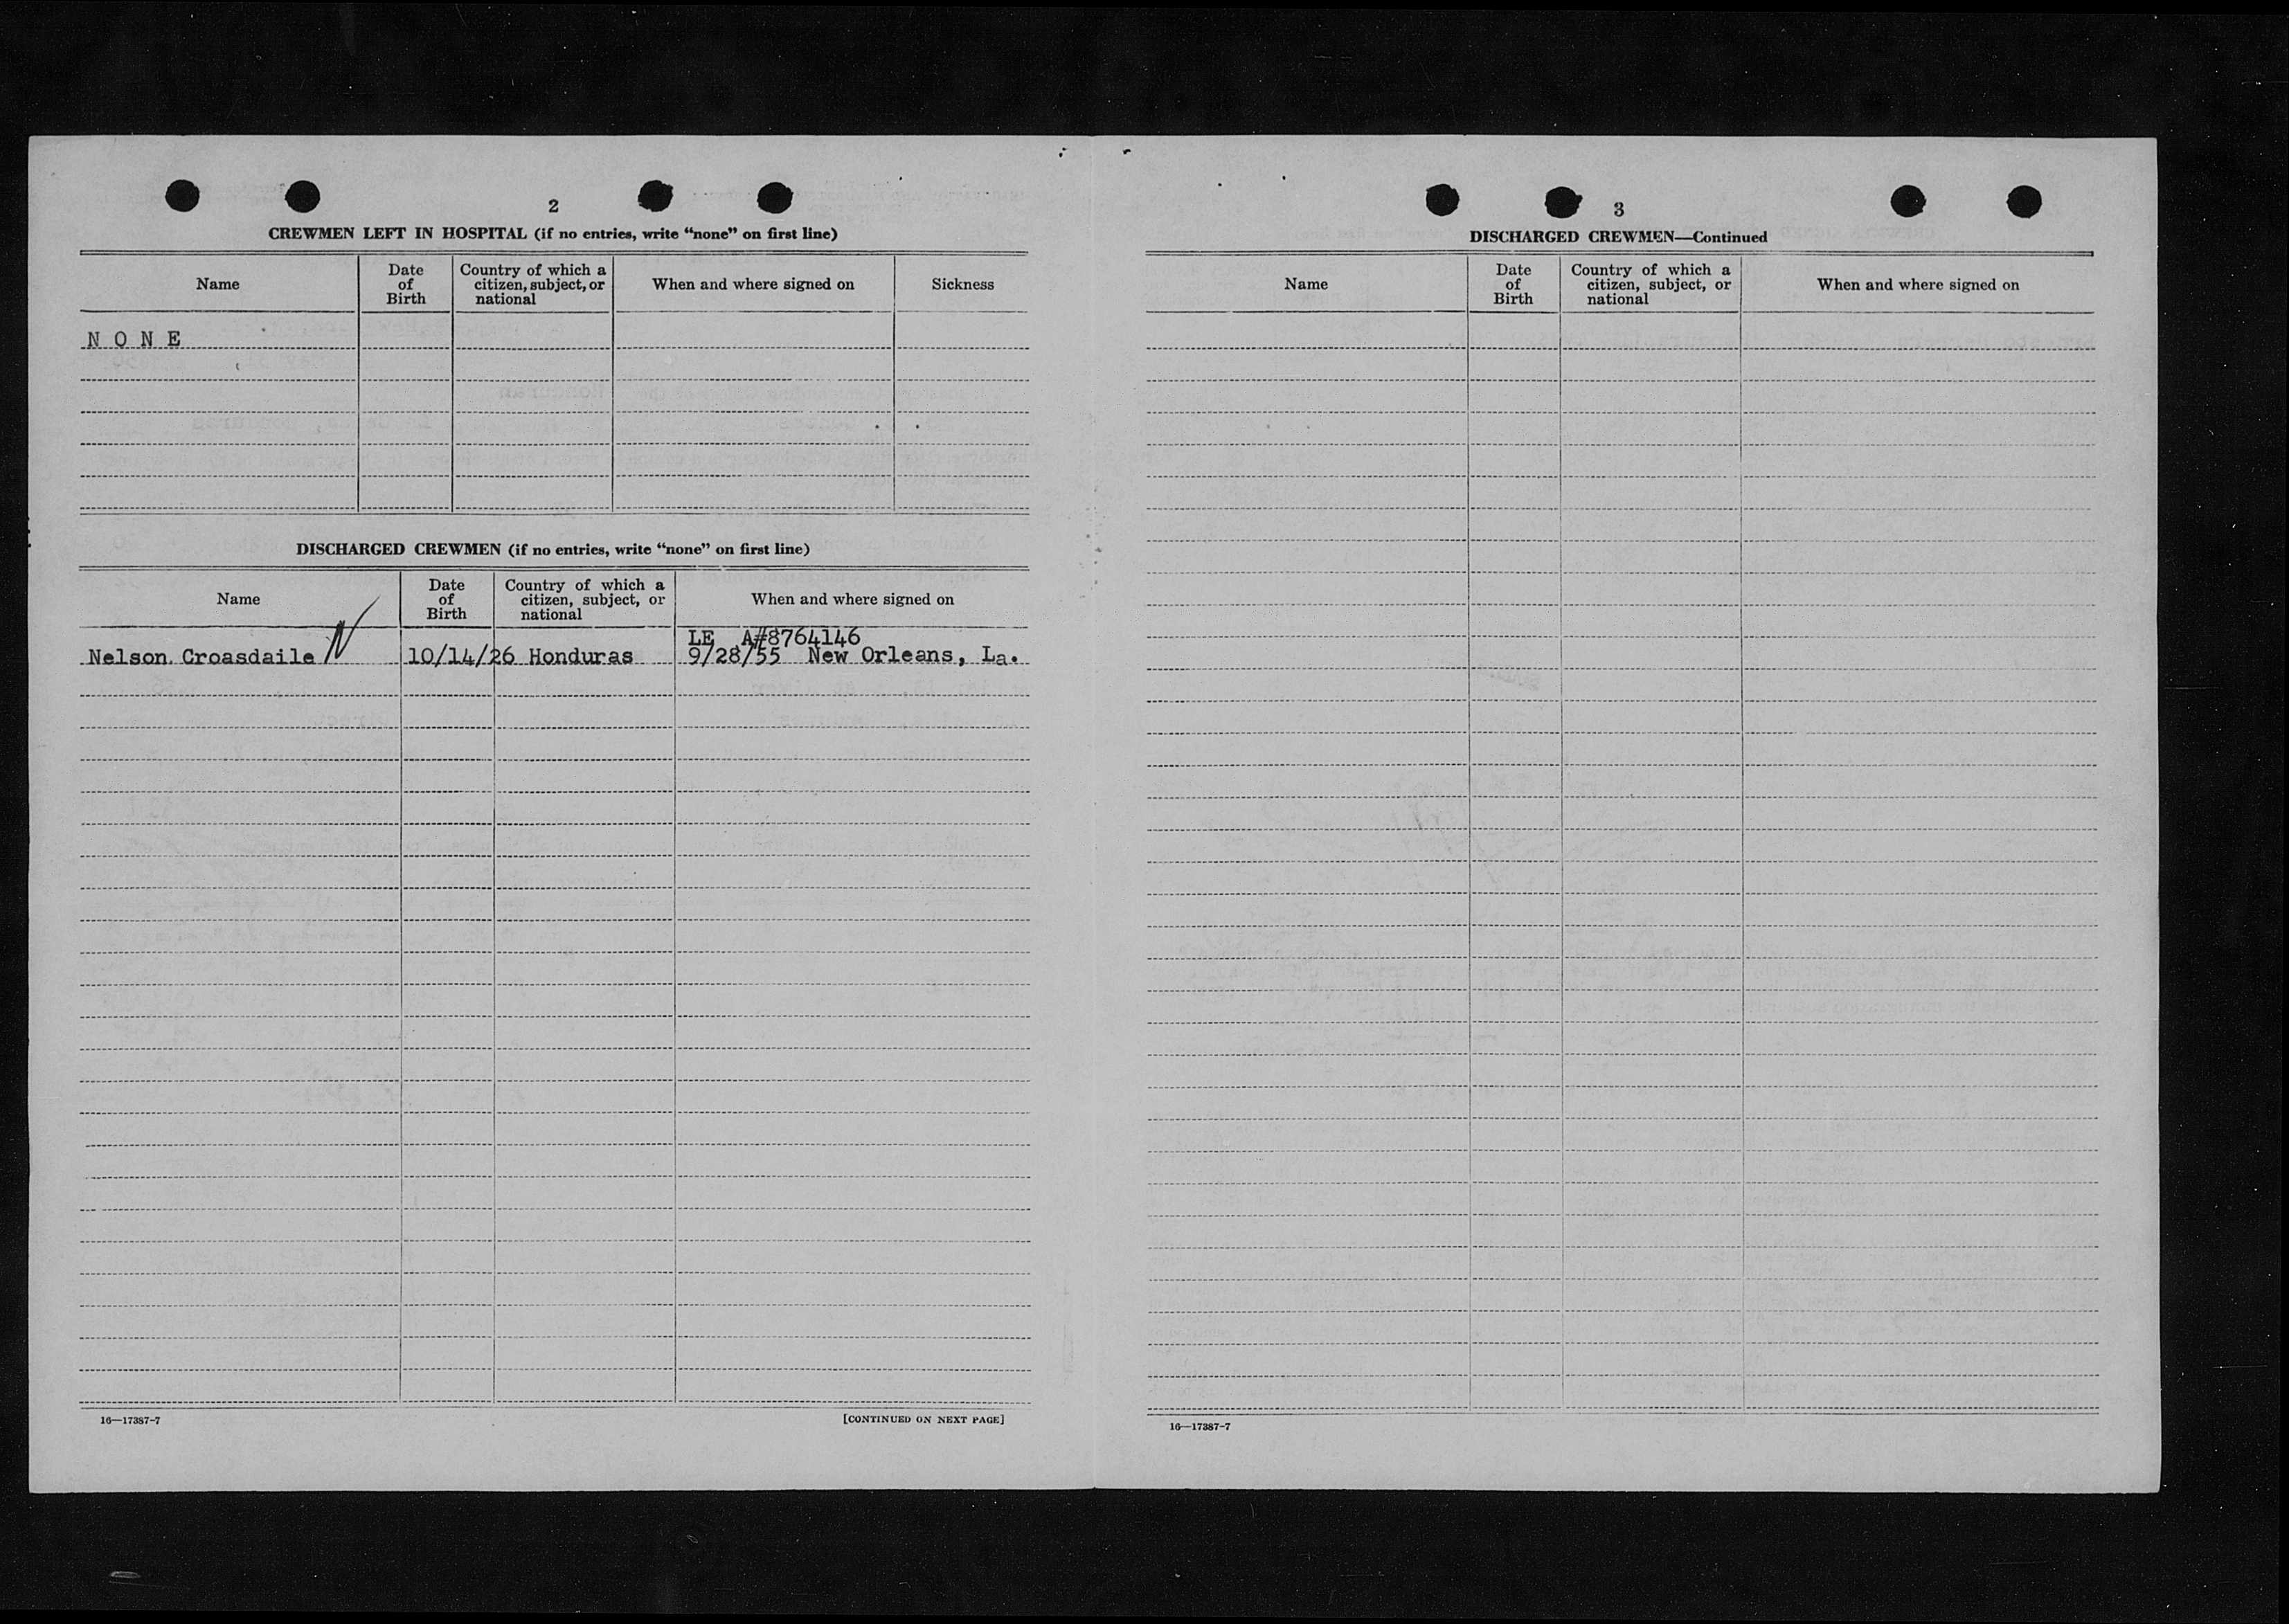 2
CREWMEN LEFT IN HOSPITAL (if no entries, write “none” on first line)
Name
Date of Birth
Country of which a citizen, subject, or national
When and where signed on
Sickness
N O N E
DISCHARGED CREWMEN (if no entries, write “none” on first line)
Name
Date of Birth
Country of which a citizen, subject, or national
When and where signed on
LE A#8764146
Nelson Croasdaile N 10/14/26 Honduras 9/28/55 New Orleans, La.
16—17387-7
[CONTINUED ON NEXT PAGE]
3
DISCHARGED CREWMEN—Continued
Name
Date of Birth
Country of which a citizen, subject, or national
When and where signed on
16—17387-7